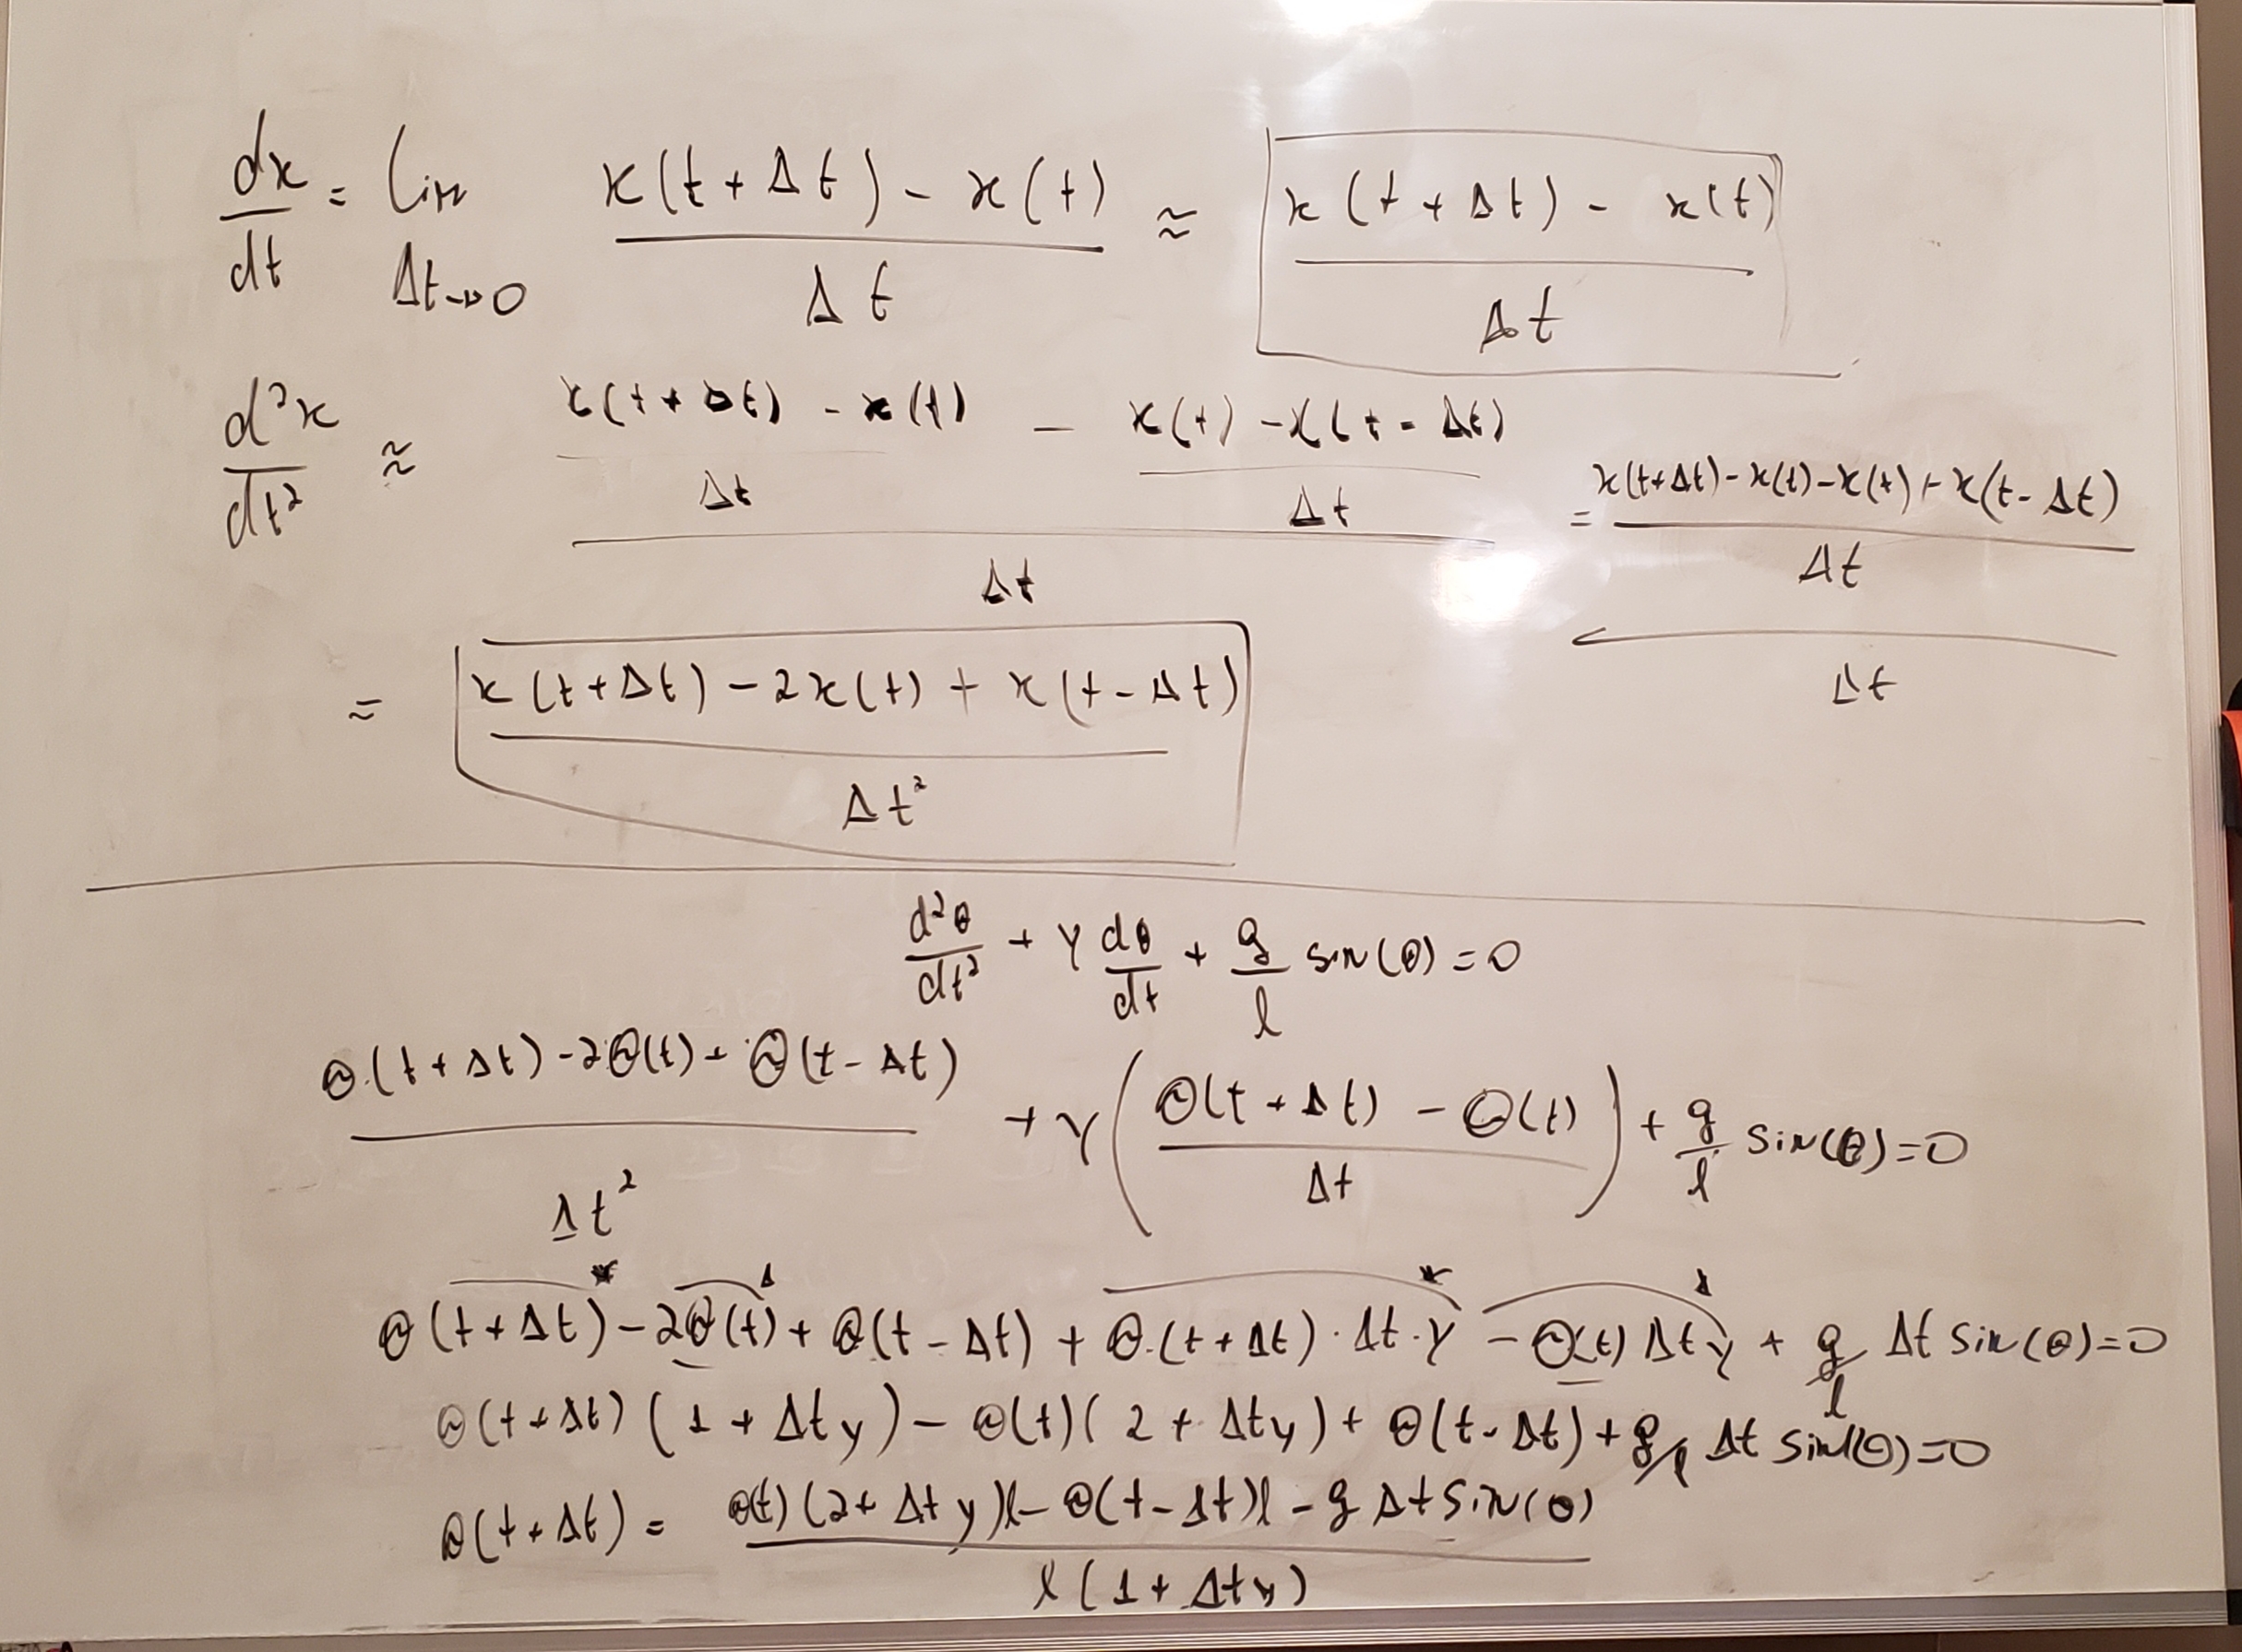 dx/dt = lim Δt→0 (x(t+Δt) - x(t))/Δt ≈ (x(t+Δt) - x(t))/Δt
d²x/dt² ≈ ((x(t+Δt) - x(t))/Δt - (x(t) - x(t-Δt))/Δt)/Δt = ((x(t+Δt) - x(t) - x(t) + x(t-Δt))/Δt)/Δt
≈ (x(t+Δt) - 2x(t) + x(t-Δt))/Δt²
d²θ/dt² + γ dθ/dt + g/l sin(θ) = 0
(θ(t+Δt) - 2θ(t) + θ(t-Δt))/Δt² + γ((θ(t+Δt) - θ(t))/Δt) + g/l sin(θ) = 0
θ(t+Δt) - 2θ(t) + θ(t-Δt) + θ(t+Δt)·Δt·γ - θ(t)Δtγ + g/l Δt sin(θ) = 0
θ(t+Δt)(1+Δtγ) - θ(t)(2+Δtγ) + θ(t-Δt) + g/l Δt sin(θ) = 0
θ(t+Δt) = (θ(t)(2+Δtγ)l - θ(t-Δt)l - gΔt sin(θ))/(l(1+Δtγ))